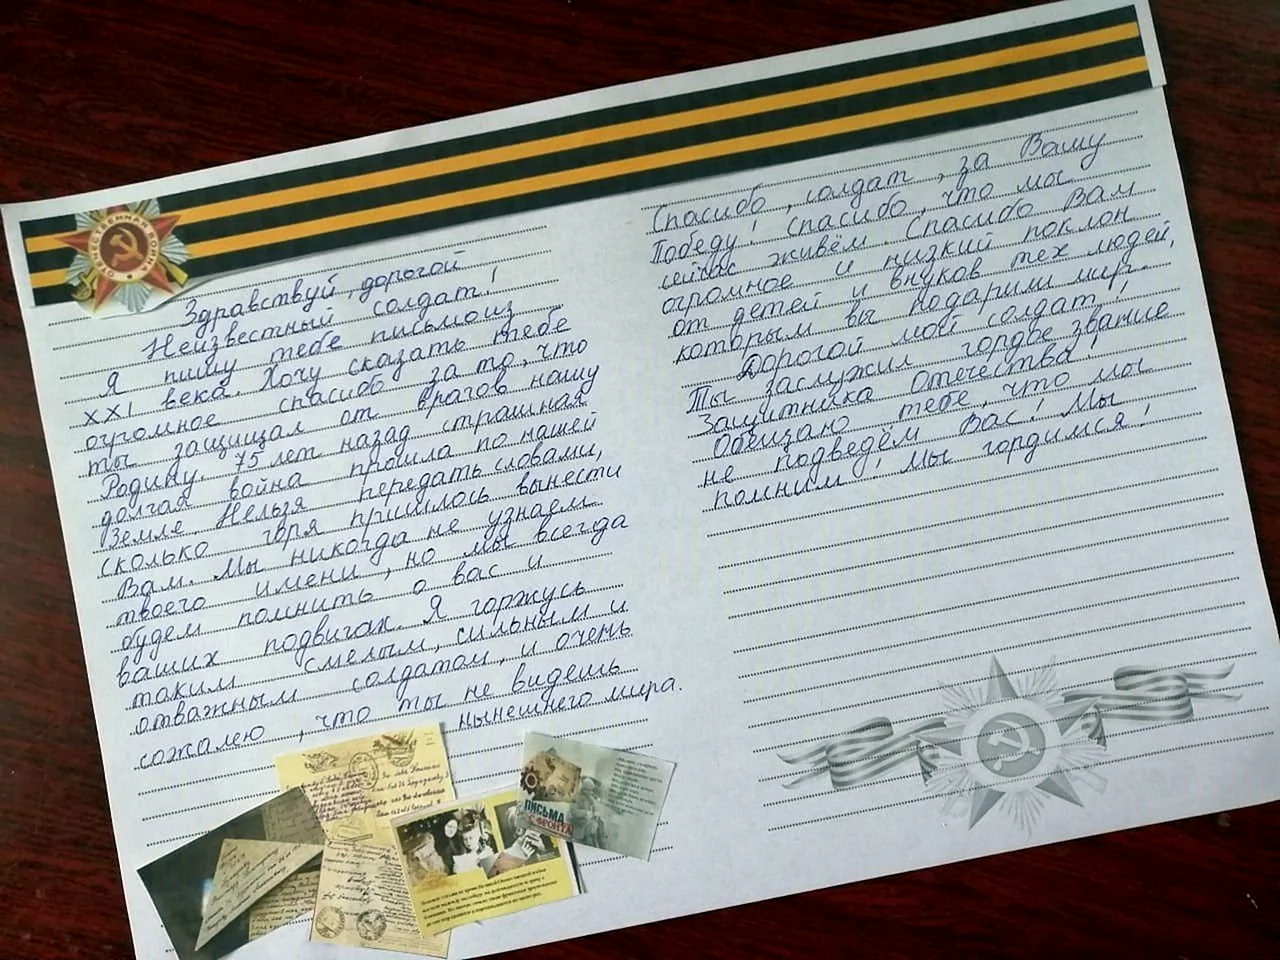 ОТЕЧЕСТВЕННАЯ ВОЙНА
Здравствуй, дорогой
Неизвестный солдат!
Я пишу тебе письмо из
XXI века. Хочу сказать тебе
огромное спасибо за то, что
ты защищал от врагов нашу
Родину. 75 лет назад страшная
долгая война прошла по нашей
Земле. Нельзя передать словами,
сколько горя пришлось вынести
Вам. Мы никогда не узнаем
твоего имени, но мы всегда
будем помнить о вас и
ваших подвигах. Я горжусь
таким смелым, сильным и
отважным солдатом, и очень
сожалею, что ты не видешь
нынешнего мира.
Спасибо, солдат, за Вашу
Победу! Спасибо, что мы
сейчас живём. Спасибо Вам
огромное и низкий поклон
от детей и внуков тех людей,
которым вы подарили мир.
Дорогой мой солдат!
Ты заслужил гордое звание
Защитника Отечества!
Обещаю тебе, что мы
не подведём Вас! Мы
помним! Мы гордимся!
ПИСЬМА
С ФРОНТА